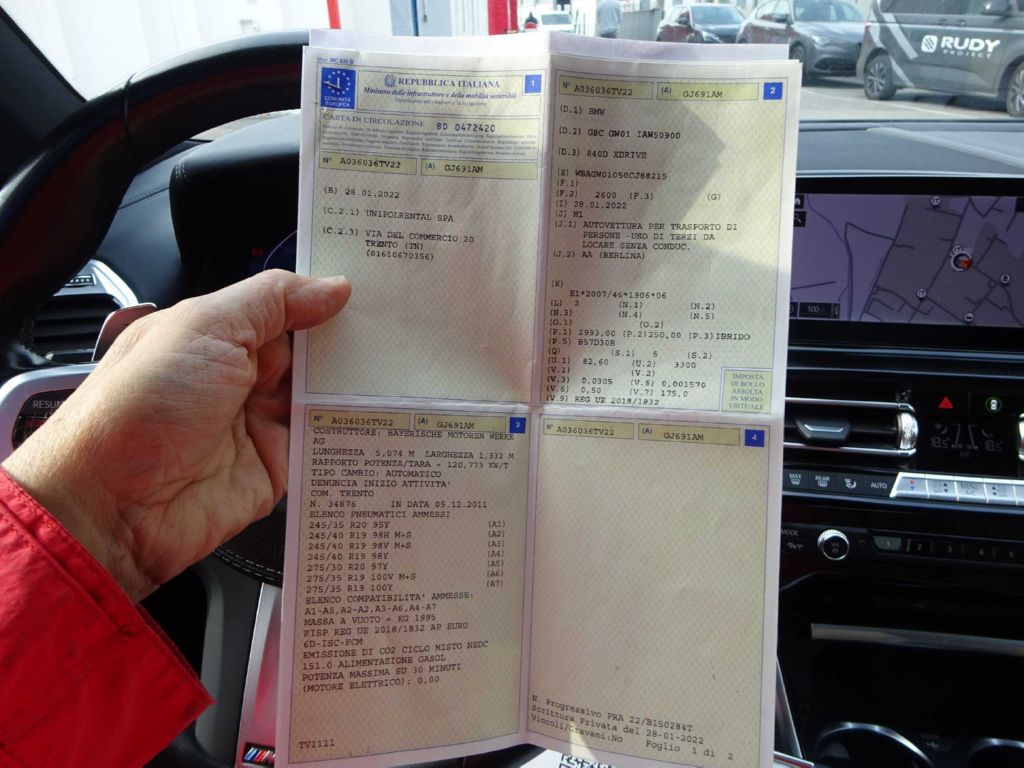 Mod. MC 820 D
COMUNITÀ EUROPEA
REPUBBLICA ITALIANA
Ministero delle infrastrutture e della mobilità sostenibili
1
CARTA DI CIRCOLAZIONE BD 0472420
N° A036036TV22 (A) GJ691AM
(B) 28.01.2022
(C.2.1) UNIPOLRENTAL SPA
(C.2.3) VIA DEL COMMERCIO 20
TRENTO (TN)
(01610670356)
N° A036036TV22 (A) GJ691AM 2
(D.1) BMW
(D.2) G8C GW01 IAW50900
(D.3) 840D XDRIVE
(E) WBAGW01050CJ88215
(F.1)
(F.2) 2600 (F.3) (G)
(I) 28.01.2022
(J) M1
(J.1) AUTOVETTURA PER TRASPORTO DI
PERSONE -USO DI TERZI DA
LOCARE SENZA CONDUC.
(J.2) AA (BERLINA)
(K)
E1*2007/46*1906*06
(L) 2 (N.1) (N.2)
(N.3) (N.4) (N.5)
(O.1) (O.2)
(P.1) 2993,00 (P.2)250,00 (P.3)IBRIDO
(P.5) B57D30B
(Q) (S.1) 5 (S.2)
(U.1) 82,60 (U.2) 3300
(V.1) (V.2)
(V.3) 0,0305 (V.5) 0,001570
(V.6) 0,50 (V.7) 175,0
(V.9) REG UE 2018/1832
IMPOSTA
DI BOLLO
ASSOLTA
IN MODO
VIRTUALE
N° A036036TV22 (A) GJ691AM 3
COSTRUTTORE: BAYERISCHE MOTOREN WERKE
AG
LUNGHEZZA 5,074 M LARGHEZZA 1,932 M
RAPPORTO POTENZA/TARA = 120,773 KW/T
TIPO CAMBIO: AUTOMATICO
DENUNCIA INIZIO ATTIVITA'
COM. TRENTO
N. 34876 IN DATA 05.12.2011
ELENCO PNEUMATICI AMMESSI
245/35 R20 95Y (A1)
245/40 R19 98H M+S (A2)
245/40 R19 98V M+S (A3)
245/40 R19 98Y (A4)
275/30 R20 97Y (A5)
275/35 R19 100V M+S (A6)
275/35 R19 100Y (A7)
ELENCO COMPATIBILITA' AMMESSE:
A1-A5,A2-A2,A3-A6,A4-A7
MASSA A VUOTO = KG 1995
RISP REG UE 2018/1832 AP EURO
6D-ISC-FCM
EMISSIONE DI CO2 CICLO MISTO NEDC
151,0 ALIMENTAZIONE GASOL
POTENZA MASSIMA SU 30 MINUTI
(MOTORE ELETTRICO): 0,00
TV1111
N° A036036TV22 (A) GJ691AM 4
N. Progressivo PRA 22/B150284T
Scrittura Privata del 28-01-2022
Vincoli/Gravami:No Foglio 1 di 2
RUDY
PROJECT
100
MAX
REAR
AUTO
MODE
1 2 3 4 5